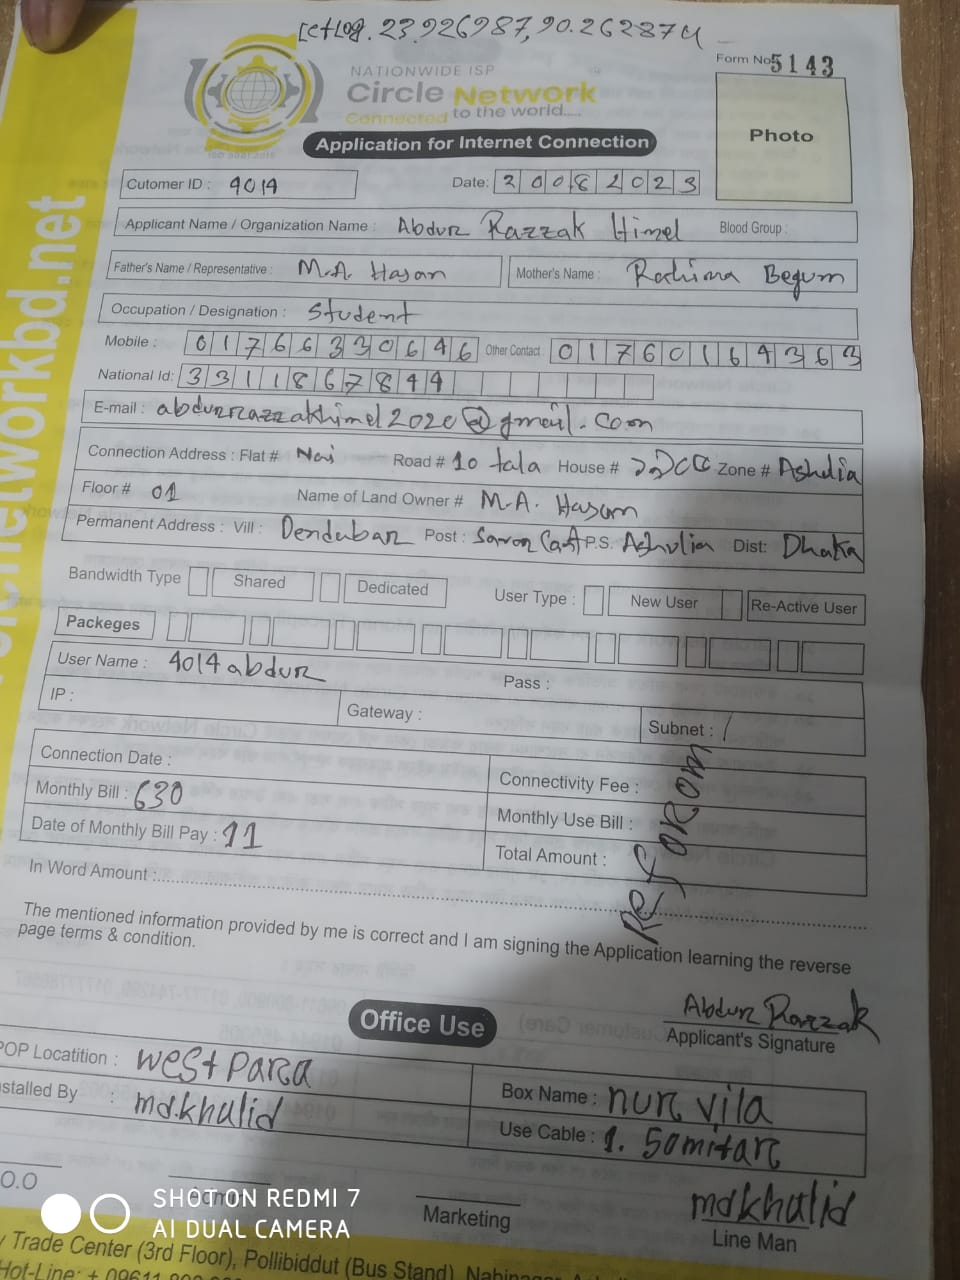 23.926987,90.262874
Form No 5143
NATIONWIDE ISP
Circle Network
Connected to the world.....
ISO 9001:2015
Photo
Application for Internet Connection
Cutomer ID : 4014 Date: 20082023
Applicant Name / Organization Name : Abdur Razzak Himel Blood Group :
Father's Name / Representative : M.A. Hasan Mother's Name : Rahima Begum
Occupation / Designation : Student
Mobile : 01766330646 Other Contact 01760164363
National Id: 3311867844
E-mail : abdurrazzakhimel2020@gmail.com
Connection Address : Flat # Road # 10 tala House # Zone # Ashulia
Floor # 01 Name of Land Owner # M.A. Hasan
Permanent Address : Vill : Dendubar Post : P.S. Ashulia Dist: Dhaka
Bandwidth Type Shared Dedicated User Type : New User Re-Active User
Packeges
User Name : 4014abdur Pass :
IP : Gateway : Subnet :
Connection Date : Connectivity Fee :
Monthly Bill : 630 Monthly Use Bill :
Date of Monthly Bill Pay : 11 Total Amount :
In Word Amount :
Re form
The mentioned information provided by me is correct and I am signing the Application learning the reverse
page terms & condition.
Abdur Razzak
Applicant's Signature
Office Use
POP Locatition : west para Box Name : nur vila
nstalled By : md.khalid Use Cable : 1. 50mitar
mdkhalid
Marketing Line Man
SHOT ON REDMI 7
AI DUAL CAMERA
Trade Center (3rd Floor), Pollibiddut (Bus Stand),
Hot-Line: + 09611
networkbd.net